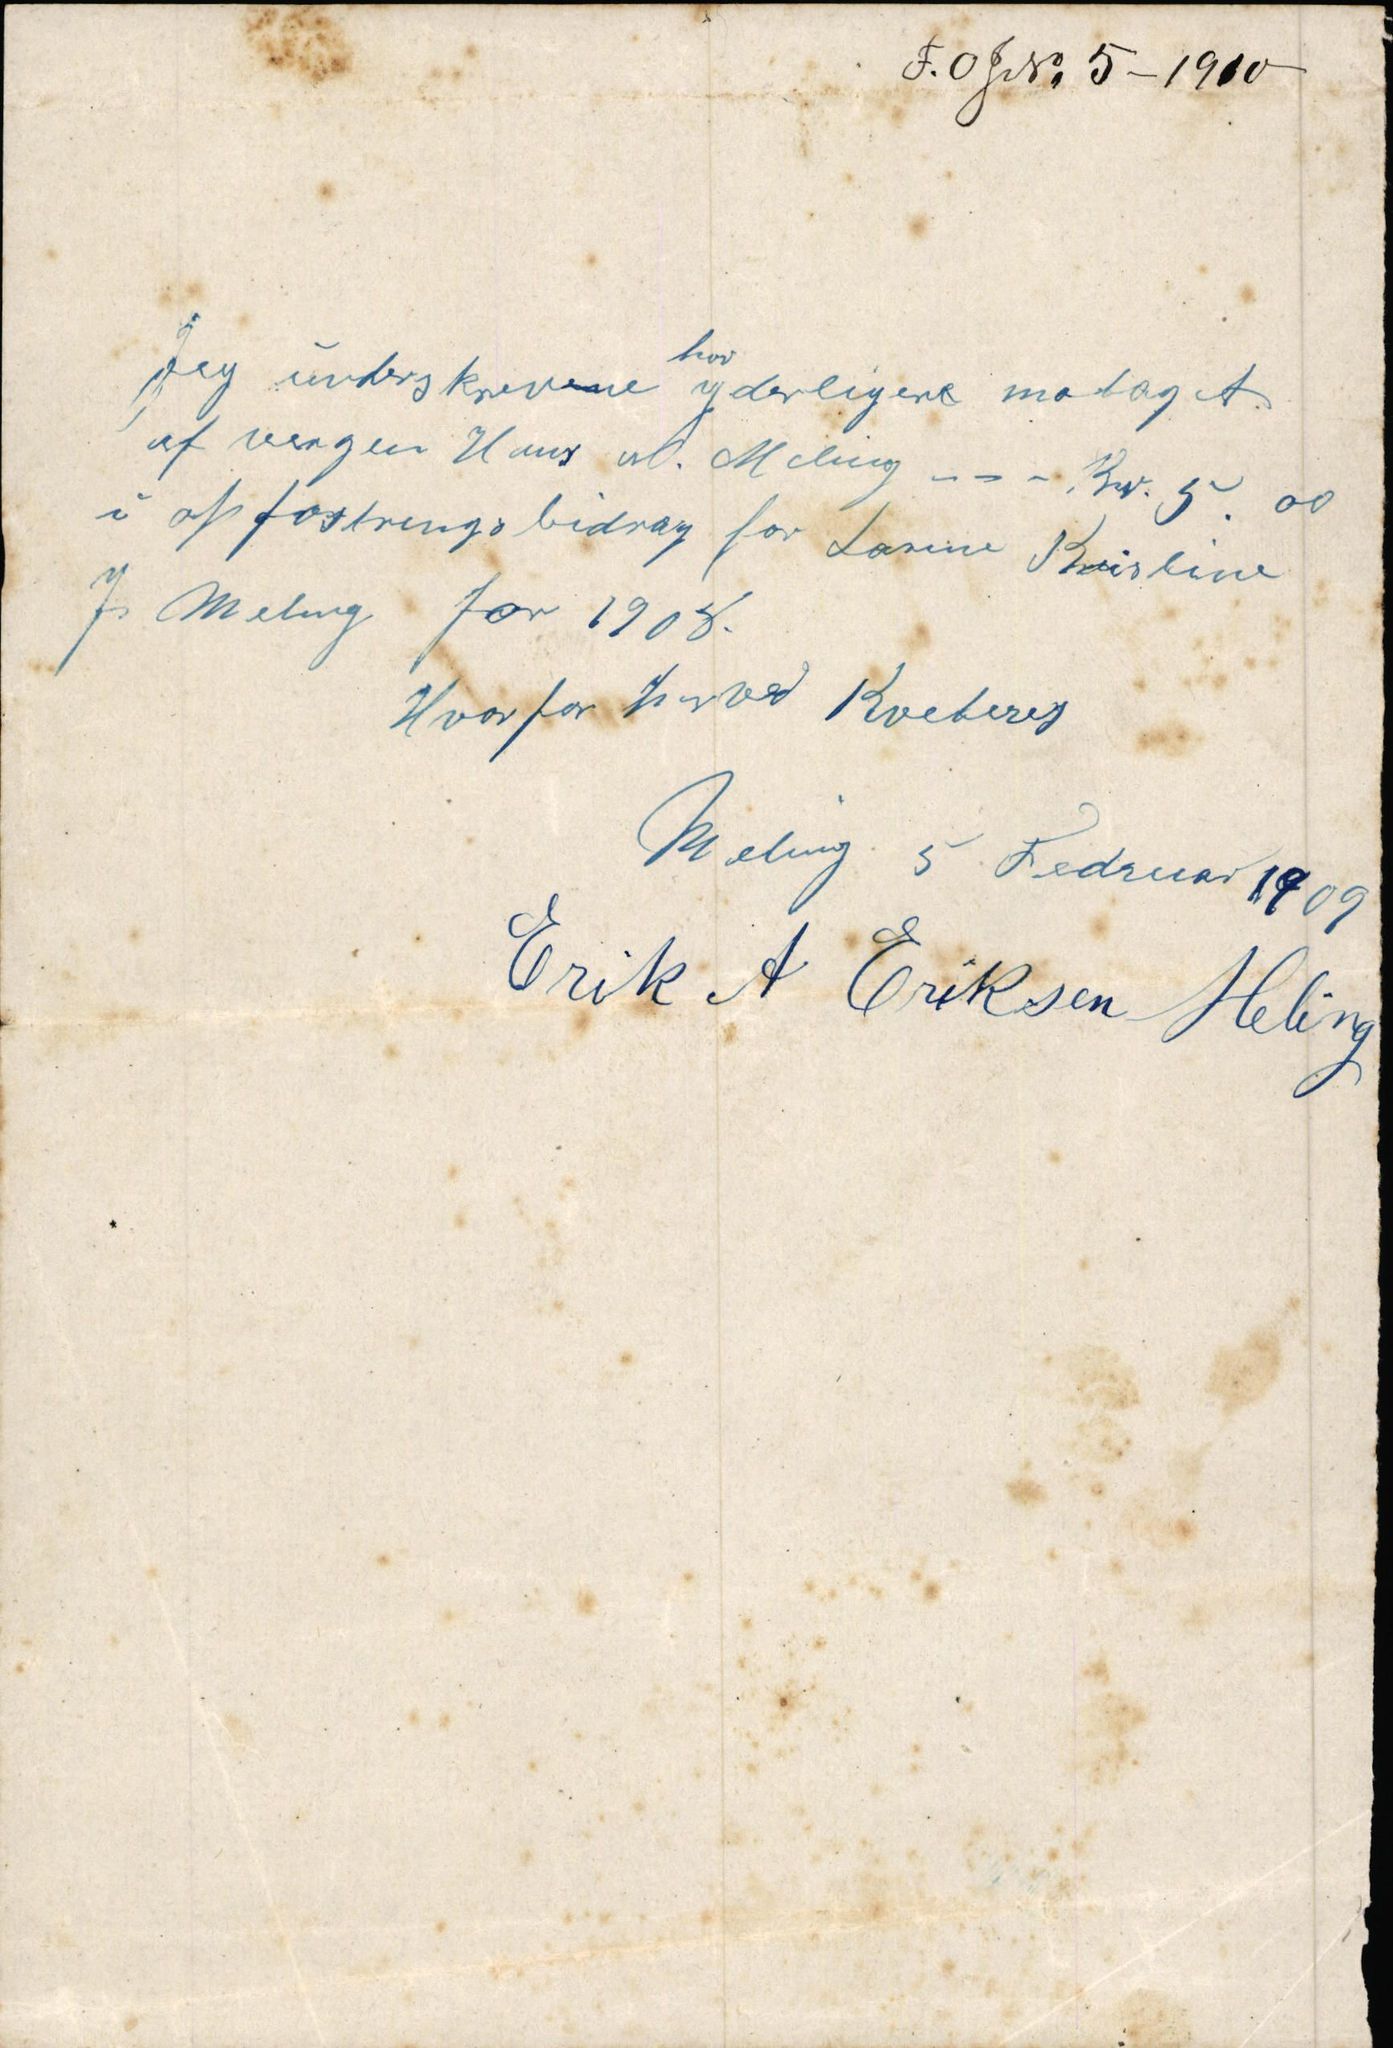 F.O.J.No. 5 - 1910
Jeg underskrevene har yderligere motaget
af vergen Hans M. Meling --- Kr. 5.00
i opfostrings bidrag for Larine Kristine
Js Meling for 1908.
Hvorfor herved Kveteres
Meling 5 Fedruar 1909
Erik A Eriksen Meling